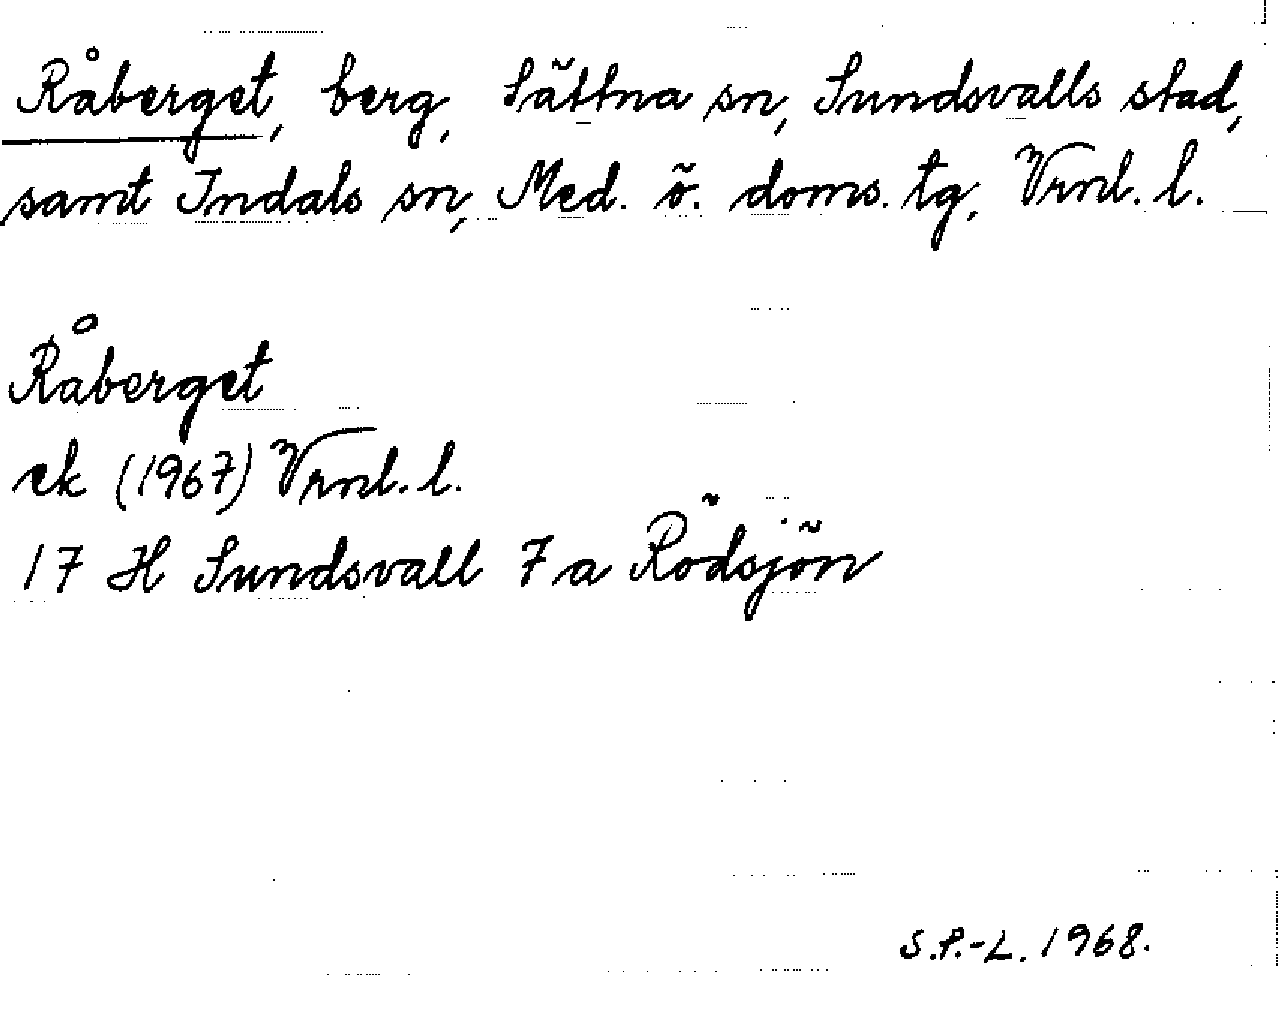 Råberget, berg, Sättna sn, Sundsvalls stad,
samt Indals sn, Med. ö. doms. tg, Vrnl. l.
Råberget
ek (1967) Vrnl. l.
17 H Sundsvall 7 a Rödsjön
S.P.-L. 1968.